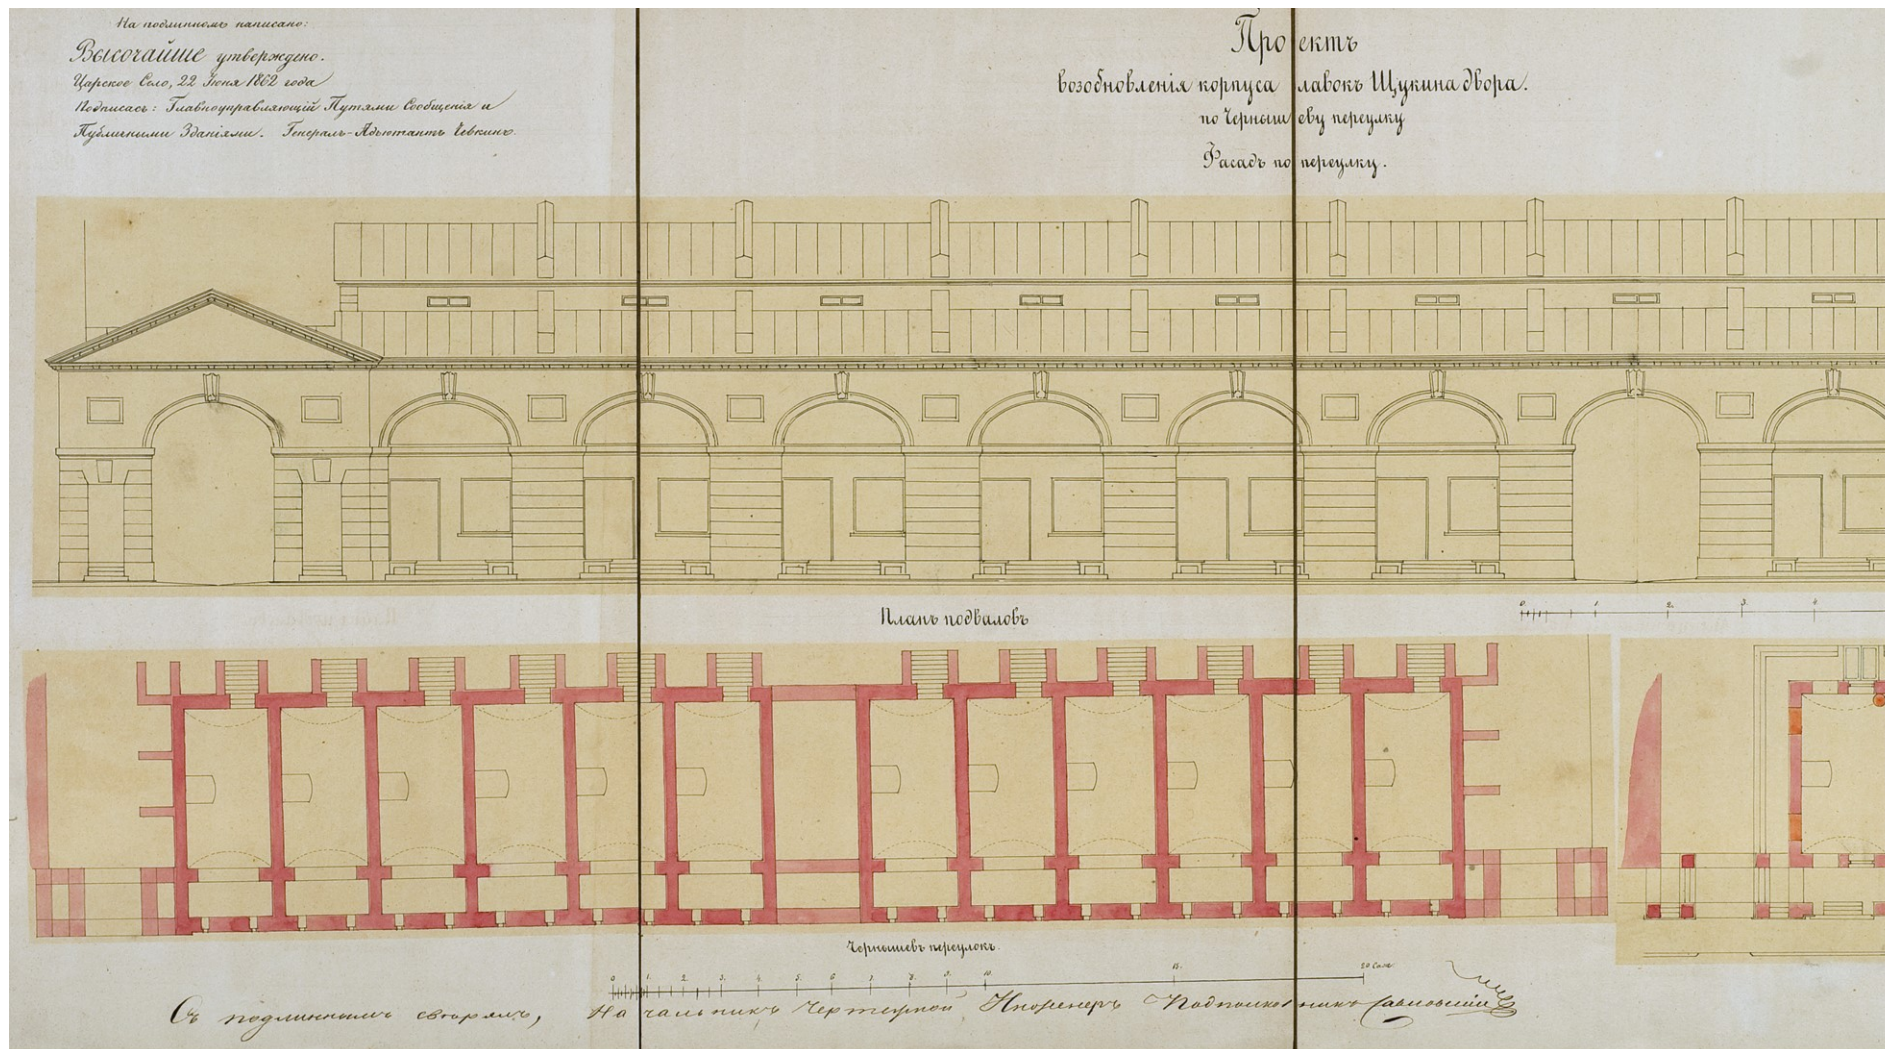 На подлинномъ написано:
Высочайше утверждено.
Царское Село, 22 Июня 1862 года
Подписалъ: Главноуправляющій Путями Сообщенія и
Публичными Зданіями. Генералъ-Адъютантъ Чевкинъ.
Проектъ
возобновленія корпуса лавокъ Щукина двора.
по Чернышеву переулку
Фасадъ по переулку.
Планъ подваловъ
0 1 2 3 4
Чернышевъ переулокъ.
0 1. 2 3. 4 5. 6 7. 8. 9. 10. 15. 20 Саж.
Съ подлиннымъ сверялъ, Начальникъ Чертежной Инженеръ Подполковникъ